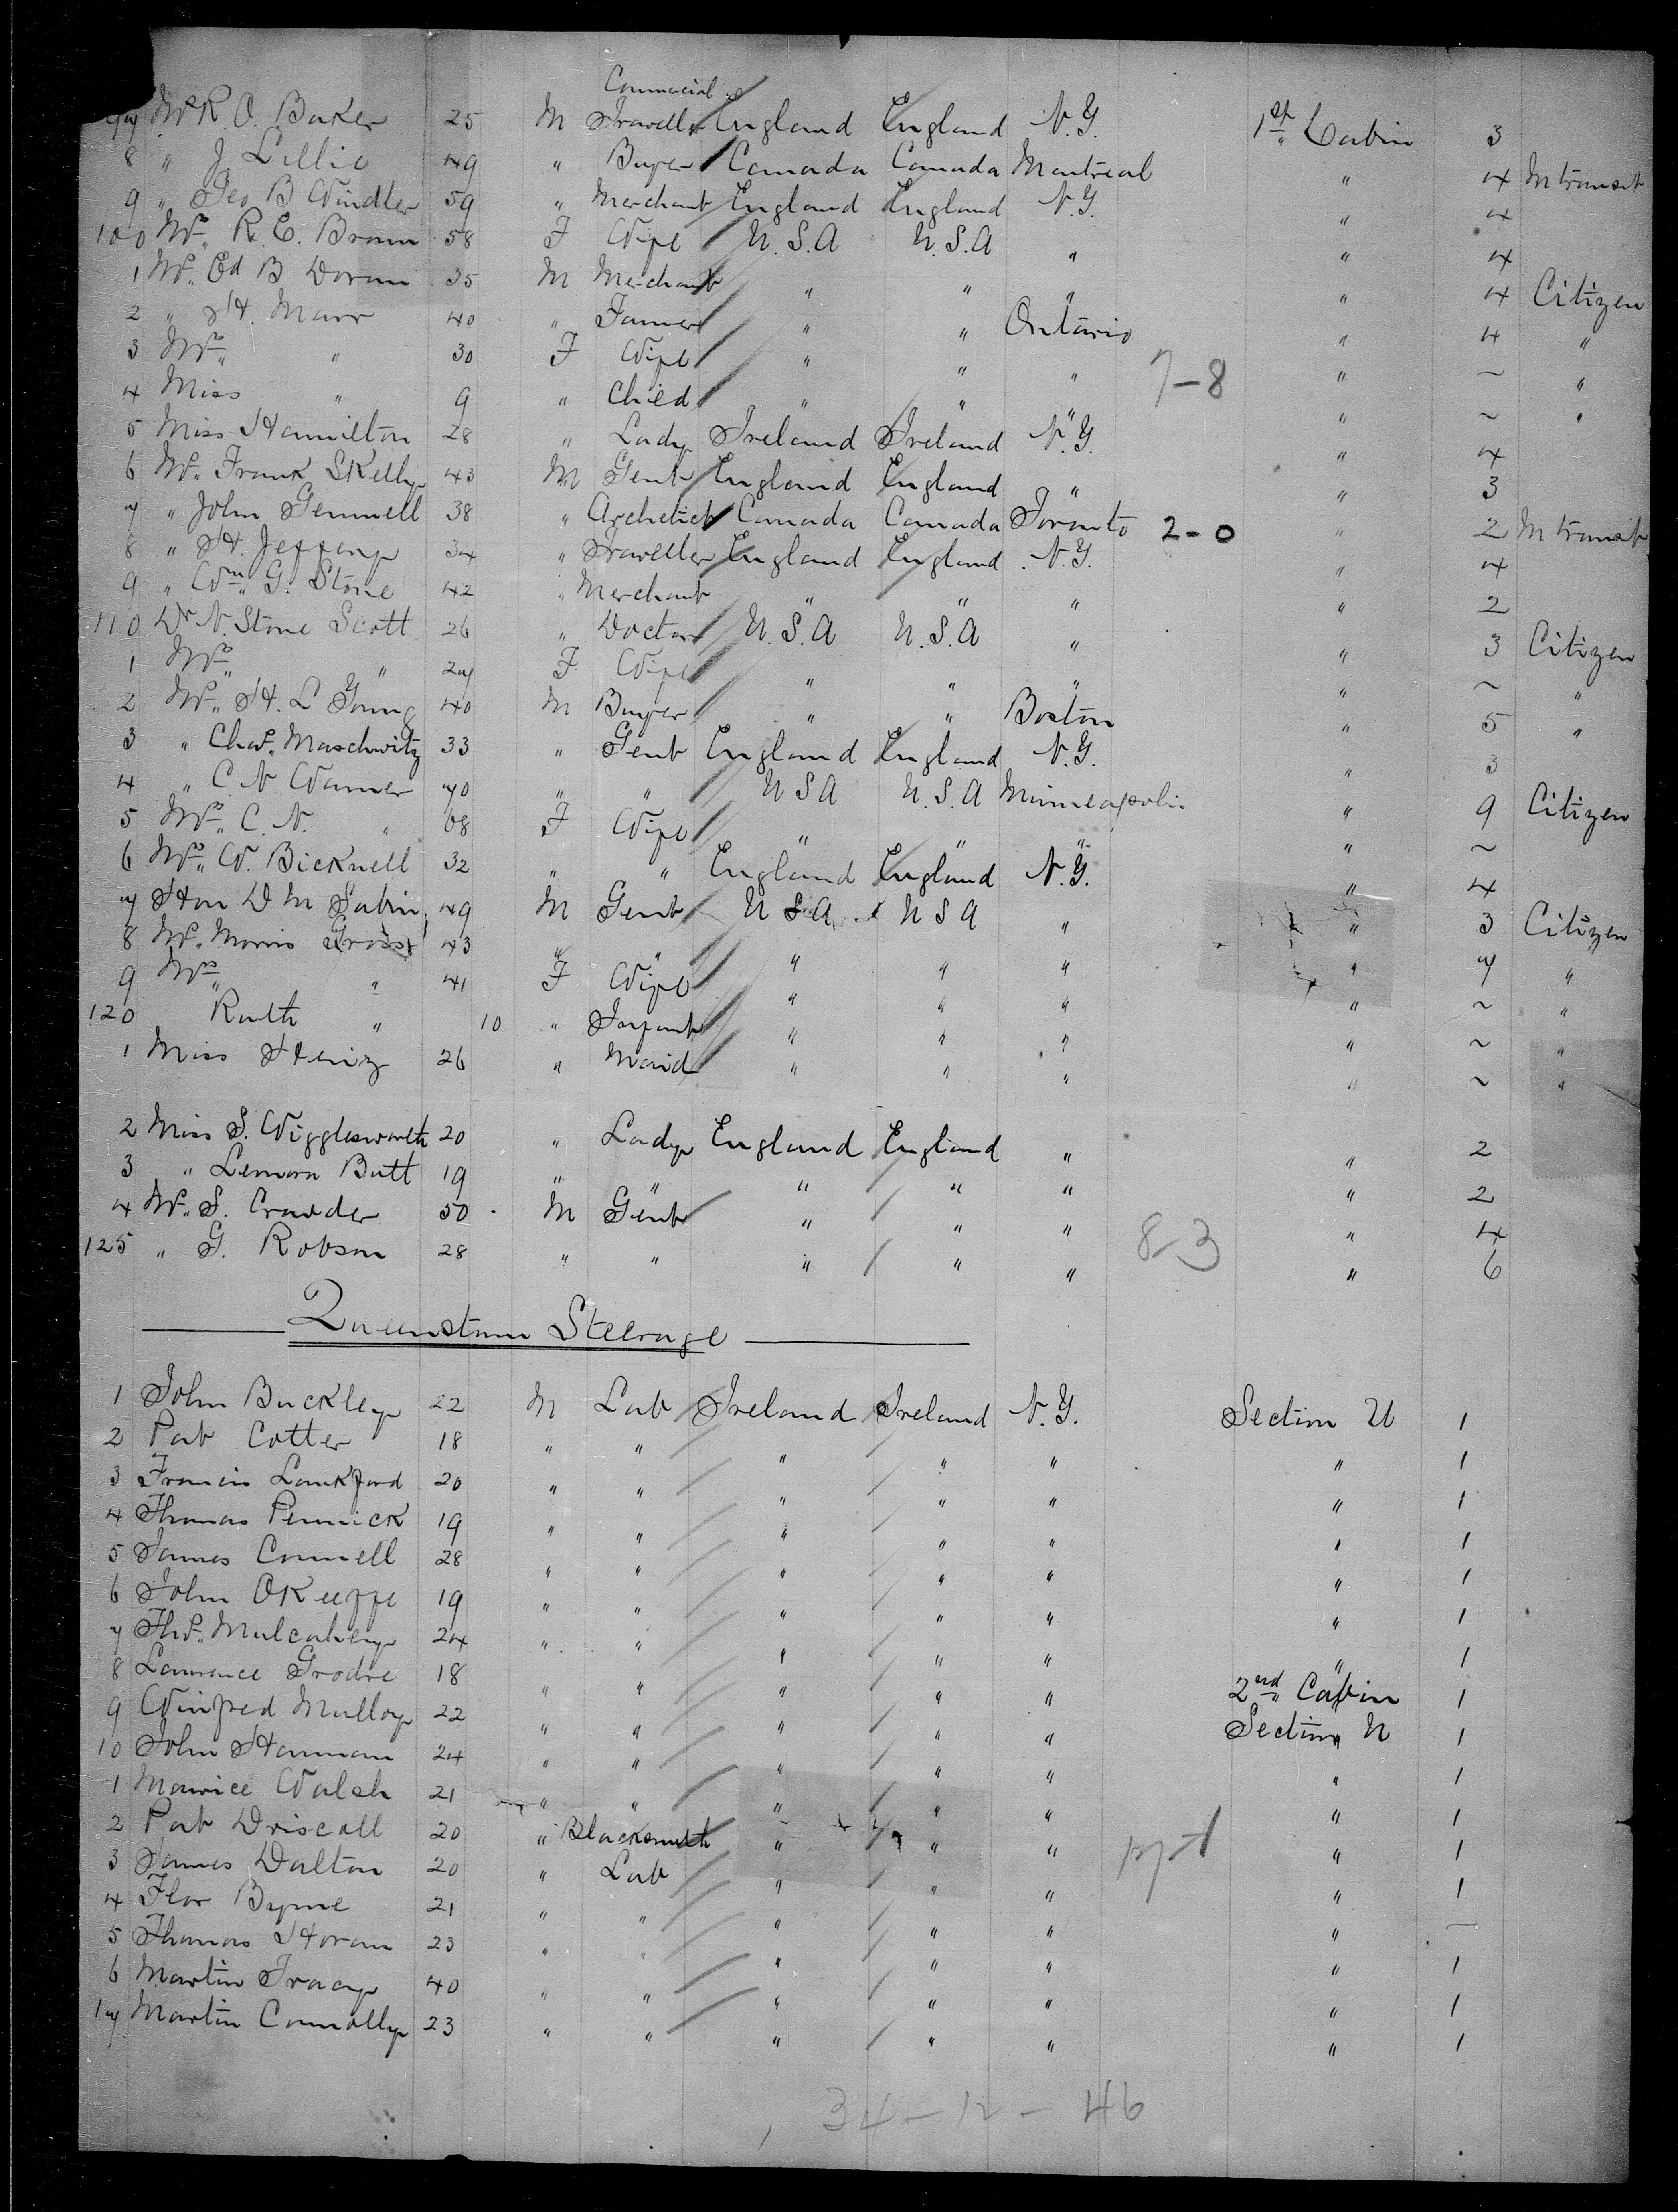 Commercial
97 Mr R. O. Baker 25 M Traveller England England N.Y. 1st Cabin 3
8 " J Lillie 49 " Buyer Canada Canada Montreal " 4 In transit
9 " Geo B Windler 59 " Merchant England England N.Y. " 4
100 Mrs R. E. Brown 58 F Wife U.S.A U.S.A " " 4
1 Mr Ed B Doran 35 M Merchant " " " " 4 Citizen
2 " H. Marr 40 " Farmer " " Ontario " 4 "
3 Mrs " 30 F Wife " " " " ~ "
7-8
4 Miss " 9 " Child " " " " ~ "
5 Miss Hamilton 28 " Lady Ireland Ireland N.Y. " 4
6 Mr Frank Skelly 43 M Gent England England " " 3
7 " John Gemmell 38 " Archetict Canada Canada Toronto 2-0 " 2 In transit
8 " H. Jeffery 34 " Traveller England England N.Y. " 4
9 " Wm G. Stone 42 " Merchant " " " " 2
110 Dr N. Stone Scott 26 " Doctor U.S.A U.S.A " " 3 Citizen
1 Mrs " 27 F Wife " " " " ~ "
2 Mr H. L Young 40 M Buyer " " Boston " 5 "
3 " Chas. Maschwitz 33 " Gent England England N.Y. " 3
4 " C. N Warner 70 " " U S A U.S.A Minneapolis " 9 Citizen
5 Mrs C. N. " 68 F Wife " " " " ~
6 Mrs W. Bicknell 32 " " England England N.Y. " 4
7 Hon D M Sabin 49 M Gent U S A U S A " " 3 Citizen
8 Mr Morris Gross 43 " " " " " " 7 "
9 Mrs " 41 F Wife " " " " ~ "
120 Ruth " 10 " Infant " " " " ~ "
1 Miss Heniz 26 " Maid " " " " ~ "
2 Miss S. Wigglesworth 20 " Lady England England " " 2
3 " Lenora Butt 19 " " " " " " 2
4 Mr S. Crowder 50 M Gent " " " " 4
125 " G. Robson 28 " " " " " 8-3 " 6
Queenstown Steerage
1 John Buckley 22 M Lab Ireland Ireland N.Y. Section U 1
2 Pat Cotter 18 " " " " " " 1
3 Francis Lankford 20 " " " " " " 1
4 Thomas Pennick 19 " " " " " " 1
5 James Connell 28 " " " " " " 1
6 John OKeeffe 19 " " " " " " 1
7 Thos. Mulcahey 24 " " " " " " 1
8 Lawrence Grodre 18 " " " " " 2nd Cabin 1
9 Winfred Mulloy 22 " " " " " Section U 1
10 John Hannan 24 " " " " " " 1
1 Maurice Walsh 21 " " " " " " 1
2 Pat Driscoll 20 " Blacksmith " " " " 1
17-1
3 James Dalton 20 " Lab " " " " 1
4 Flor Byrne 21 " " " " " " ~
5 Thomas Horan 23 " " " " " " 1
6 Martin Tracy 40 " " " " " " 1
17 Martin Connolly 23 " " " " " " 1
34-12-46